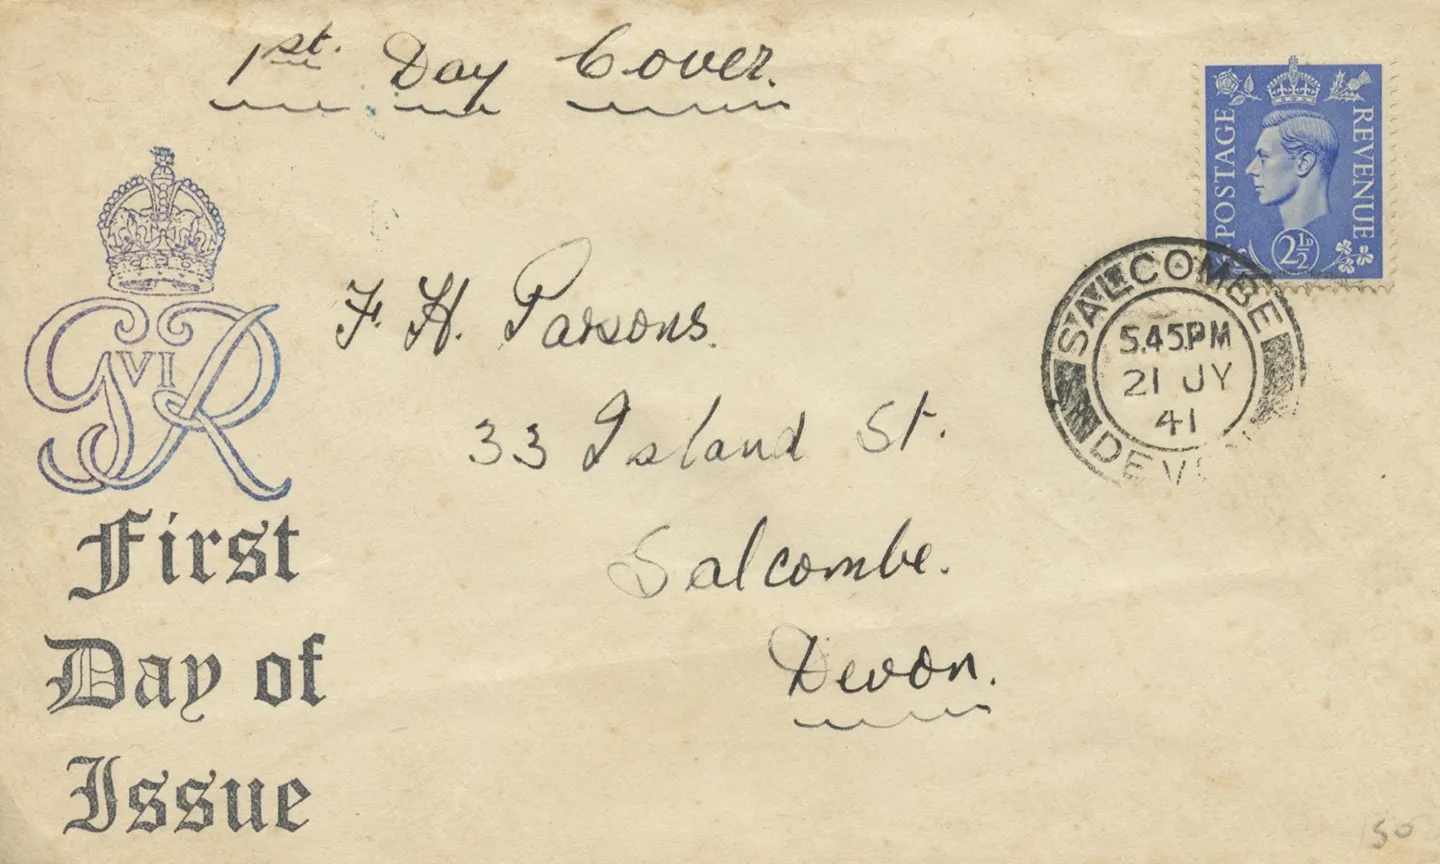 1st. Day Cover.
POSTAGE
REVENUE
2½D
SALCOMBE
5.45PM
21 JY
41
DEV
GVIR
F. H. Parsons.
33 Island St.
Salcombe.
Devon.
First
Day of
Issue
50